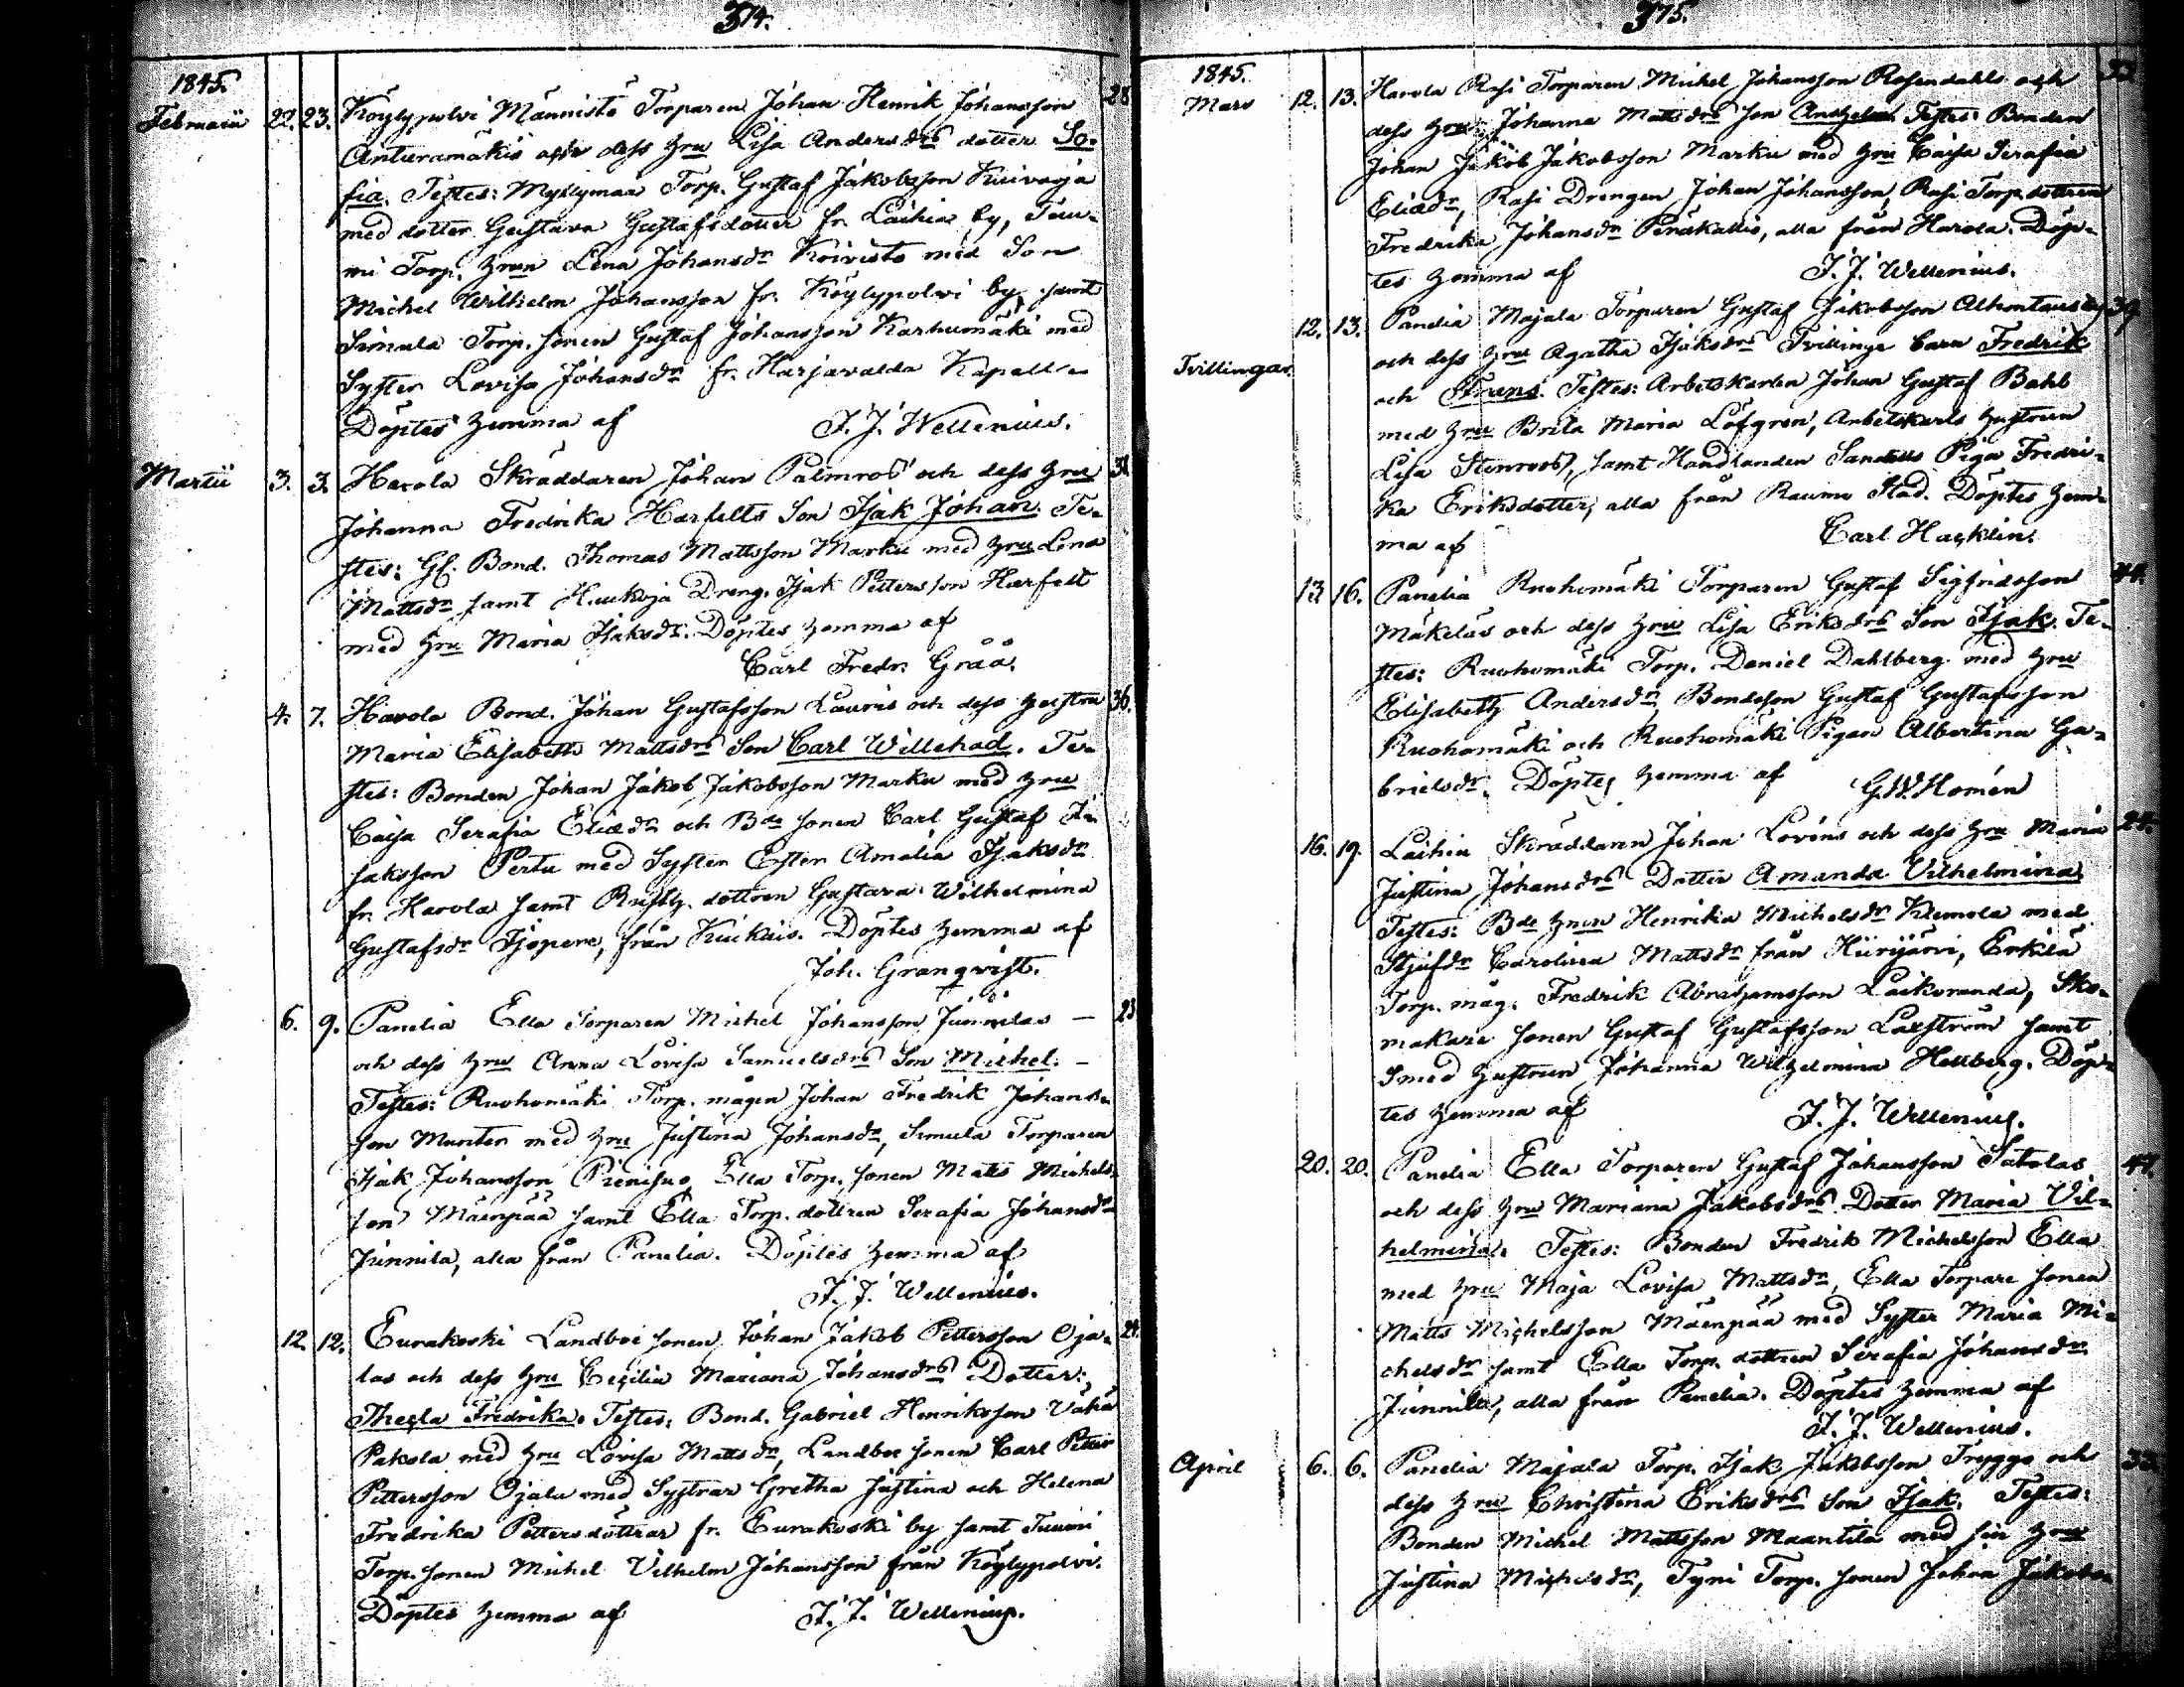 374.
1845.
Februarii 22. 23. Köylypolvi Männistö Torparen Johan Henrik Johansson 28
Anturamäkis och dess hru Lisa Andersdrs dotter So-
fia. Testes: Myllymaa Torp. Gustaf Jakobsson Kuivoja
med dotter Gustava Gustafsdotter fr. Laihia by, Tuu-
mi Torp. hrun Lena Johansdr Koivisto med Son
Michel Wilhelm Johansson fr. Köylypolvi by, samt
Simula Torp. sonen Gustaf Johansson Karhumäki med
Syster Lovisa Johansdr fr. Harjavalda Kapell.
Döptes hemma af F. J. Wellenius.
Martii 3. 3. Harola Skräddaren Johan Palmros och dess hru 31
Johanna Fredrika Harfelts Son Isak Johan. Te-
stes: Gf. Bond. Thomas Mattsson Marku med hru Lena
Mattsdr samt Huukoja Dreng. Isak Pettersson Harfelt
med hru Maria Isaksdr. Döptes hemma af
Carl Fredr. Gråå.
4. 7. Harola Bond. Johan Gustafsson Lauris och dess hustru 36.
Maria Elisabeth Mattsdrs Son Carl Willehad. Te-
stes: Bonden Johan Jakob Jakobsson Marku med hru
Caisa Serafia Eliædr och Bde sonen Carl Gustaf
saksson Pertu med Syster Ester Amalia Isaksdr
fr. Harola samt Rusth. dottren Gustava Wilhelmina
Gustafsdr Sjöpere, från Kiukais. Döptes hemma af
Joh. Granqvist.
6. 9. Panelia Ella Torparen Michel Johansson Junnilas — 23
och dess hru Anna Lovisa Samuelsdrs Son Michel. —
Testes: Ruohomäki Torp. mågen Johan Fredrik Johans-
son Munter med hru Justina Johansdr, Simula Torparen
Isak Johansson Ella Torp. sonen Matts Michels-
son Mäenpää samt Ella Torp. dottren Serafia Johansdr
Junnila, alla från Panelia. Döptes hemma af
F. J. Wellenius.
12. 12. Eurakoski Landboe sonen Johan Jakob Pettersson Oja- 24.
las och dess hru Cecilia Mariana Johansdrs Dotter:
Thecla Fredrika. Testes: Bond. Gabriel Henriksson Vähä
Pakola med hru Lovisa Mattsdr, Landboe sonen Carl Petter
Pettersson Ojala med Systrar Gretha Justina och Helena
Fredrika Pettersdöttrar fr. Eurakoski by samt Tuumi
Torp. sonen Michel Vilhelm Johansson från Köylypolvi.
Döptes hemma af F. J. Wellenius.
375.
1845.
Mars 12. 13. Harola Rasi Torparen Michel Johansson Rosendahls och 33
dess hru Johanna Mattsdrs son Anshelm. Testes: Bonden
Johan Jakob Jakobsson Marku med hru Caisa Serafia
Eliædr, Rasi Drengen Johan Johansson, Rasi Torp. dottren
Fredrika Johansdr Peräkallis, alla från Harola. Döp-
tes hemma af F. J. Wellenius.
12. 13. Panelia Majala Torparen Gustaf Jakobsson 39
Tvillingar. och dess hru Agatha Isaksdrs Tvillinge barn Fredrik
och Frans. Testes: Arbetskarlen Johan Gustaf Bahl
med hru Brita Maria Löfgren, Arbetskarls hustrun
Lisa Stenroos, samt Handlanden Sandells Piga Fredri-
ka Eriksdotter, alla från Raumo Stad. Döptes hem-
ma af Carl Hacklin.
13. 16. Panelia Ruohomäki Torparen Gustaf Sigfridsson 44.
Mäkeläs och dess hru Lisa Eriksdrs Son Isak. Te-
stes: Ruohomäki Torp. Daniel Dahlberg med hru
Elisabeth Andersdr Bondeson Gustaf Gustafsson
Ruohomäki och Ruohomäki Pigan Albertina Ga-
brielsdr. Döptes hemma af G.W. Homén
16. 19. Laihia Skräddaren Johan Lovins och dess hru Maria 25.
Justina Johansdrs Dotter Amanda Vilhelmina
Testes: Bde hrun Henrika Michelsdr Klemola med
Stjufdr Carolina Mattsdr från Hiirijärvi, Erkilä
Torp. måg. Fredrik Abrahamsson Laikoranda, Sko-
makare sonen Gustaf Gustafsson Laxström samt
Smed hustrun Johanna Wilhelmina Hellberg. Döp-
tes hemma af F. J. Wellenius.
20. 20. Panelia Ella Torparen Gustaf Johansson Satolas 47.
och dess hru Mariana Jakobsdrs Dotter Maria Vil-
helmina. Testes: Bonden Fredrik Michelsson Ella
med hru Maja Lovisa Mattsdr, Ella Torpare sonen
Matts Michelsson Mäenpää med Syster Maria Mi-
chelsdr samt Ella Torp. dottren Serafia Johansdr
Junnila, alla från Panelia. Döptes hemma af
F. J. Wellenius.
April 6. 6. Panelia Majala Torp. Isak Jakobsson Tryggs och 33.
dess hru Christina Eriksdrs Son Isak. Testes:
Bonden Michel Mattsson Maantila med sin hru
Justina Michelsdr, Tyni Torp. sonen Johan Jakobs-